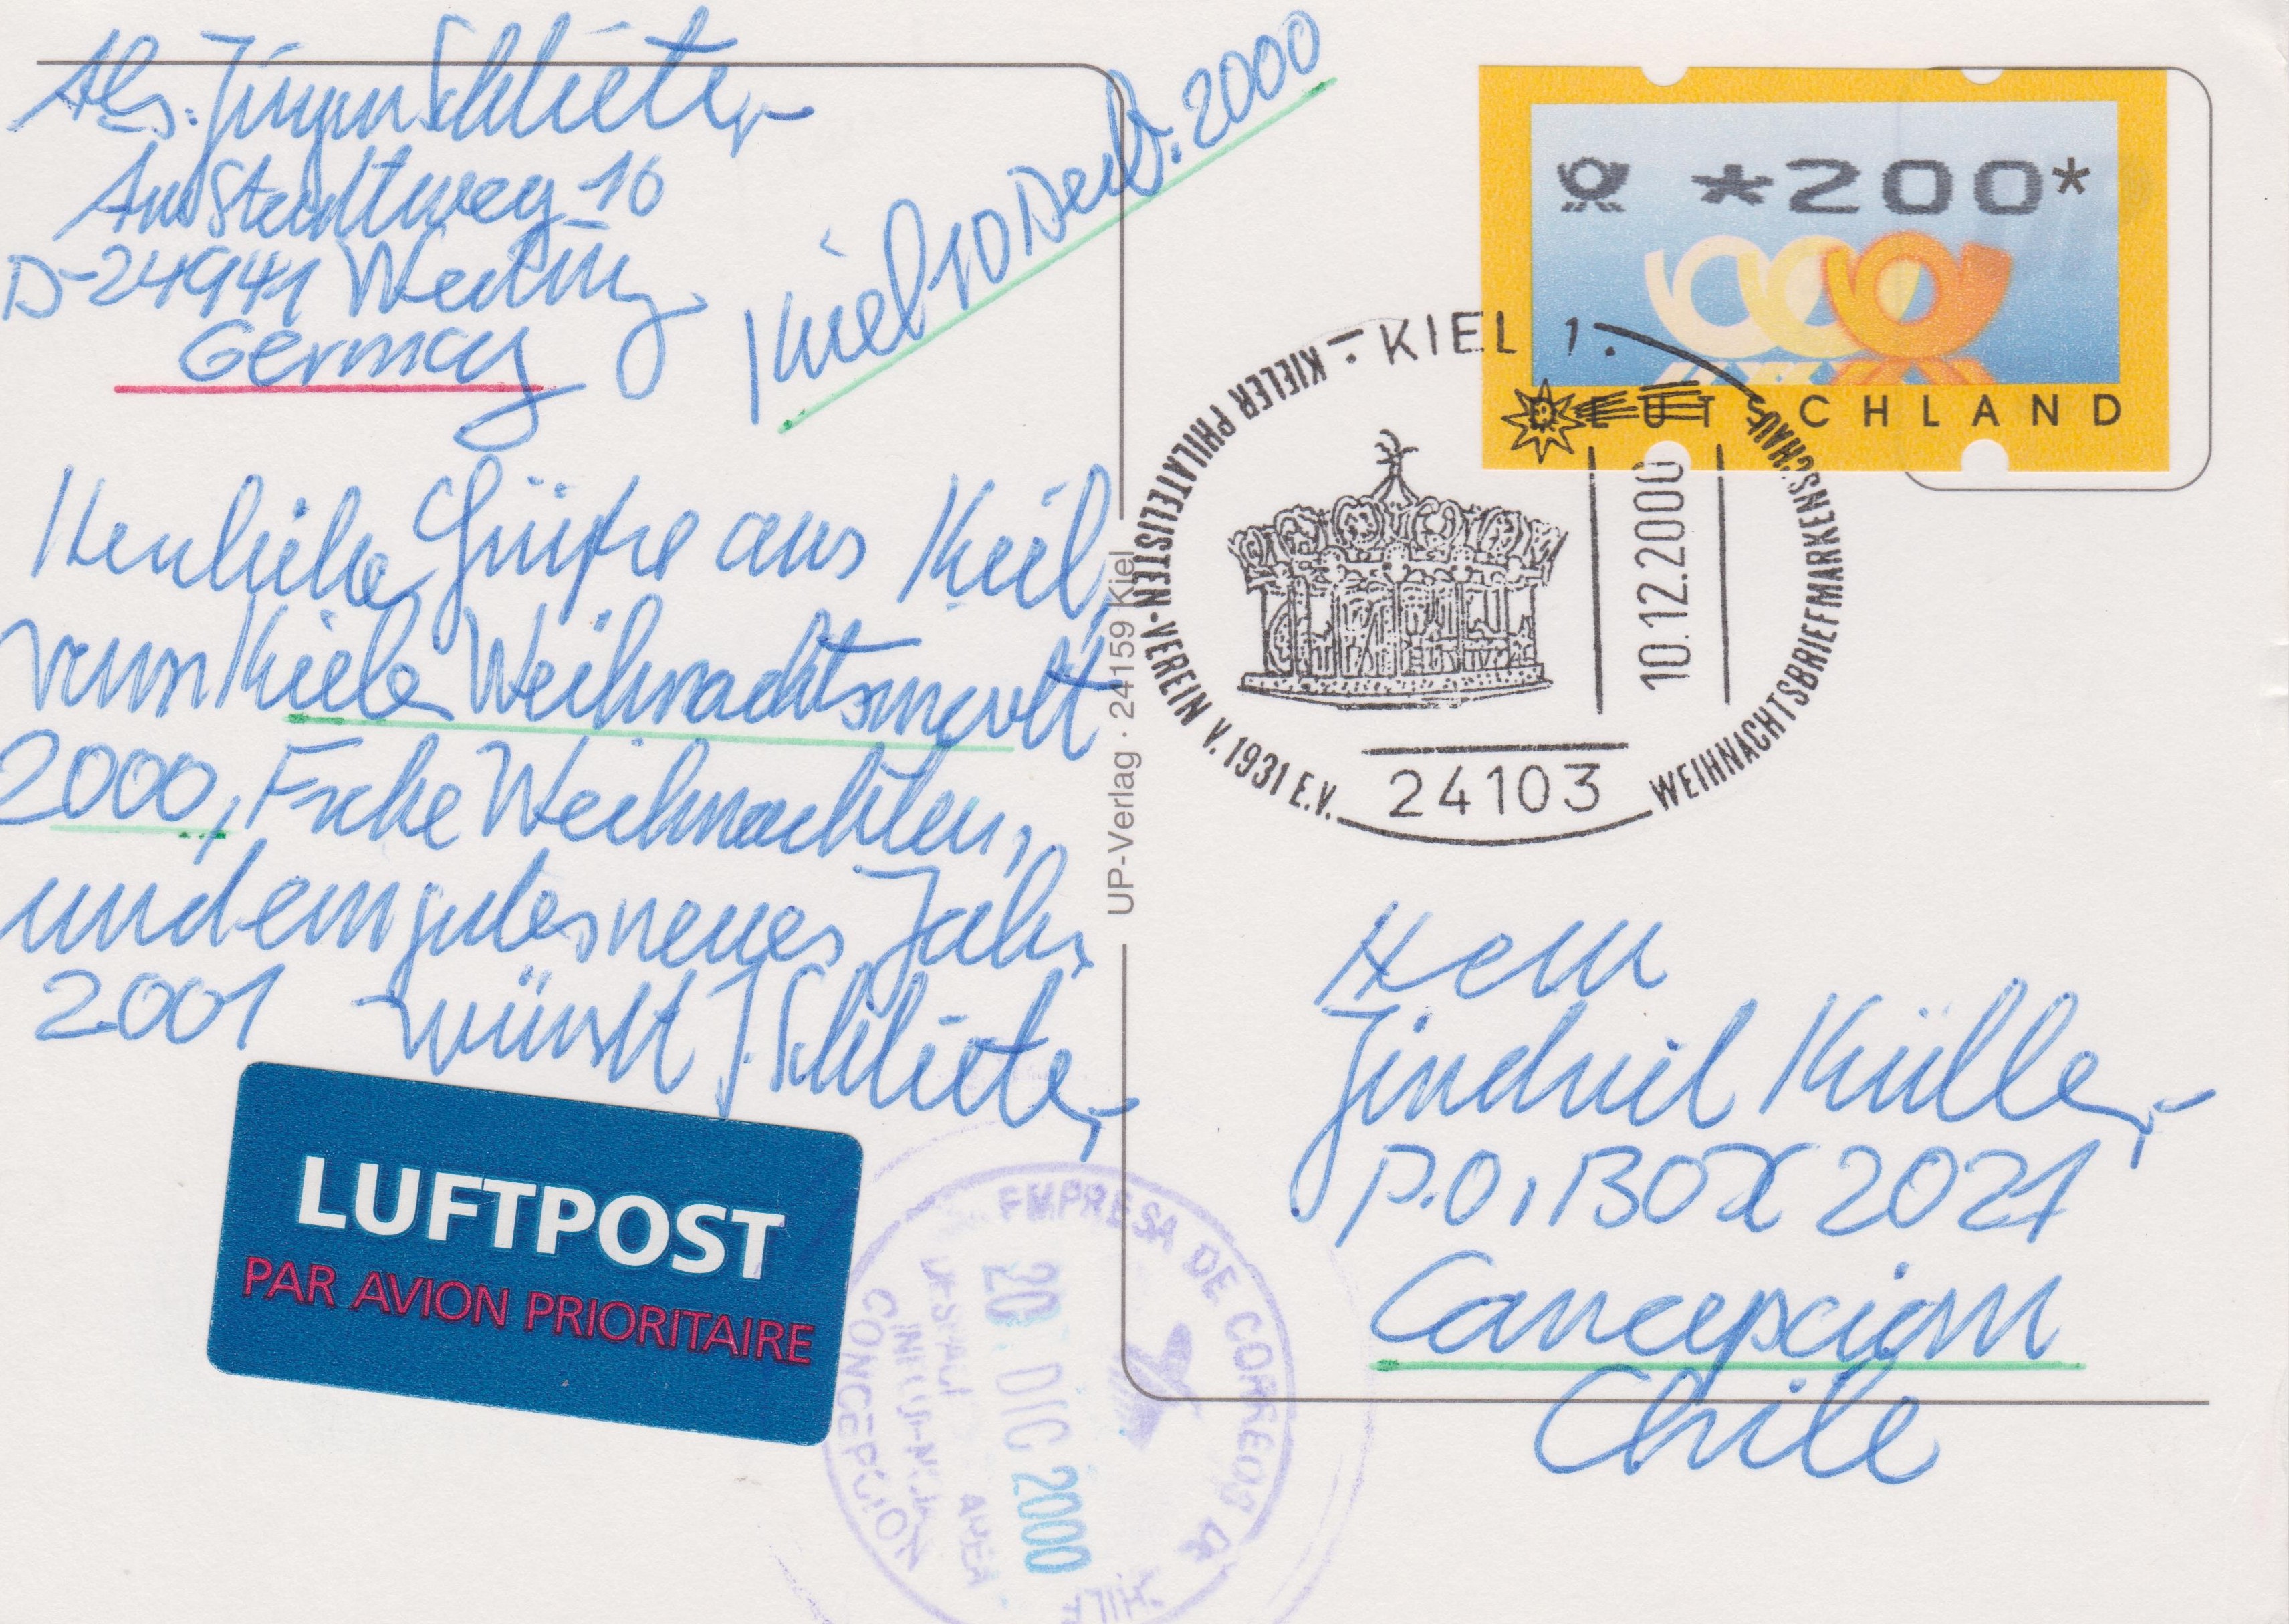 Abs. Jürgen Schlieter
Am Stadtweg 16
D-24941 Weding
Germany
Kiel 10 Dezb. 2000
Herzliche Grüße aus Kiel,
vom Kieler Weihnachtsmarkt
2000, Frohe Weihnachten,
und ein gutes neues Jahr
2001 wünscht J. Schlieter
LUFTPOST
PAR AVION PRIORITAIRE
UP-Verlag · 24159 Kiel
*200*
DEUTSCHLAND
KIEL 1
KIELER PHILATELISTEN-VEREIN V. 1931 E.V.
WEIHNACHTSBRIEFMARKENSCHAU
10.12.2000
24103
Herrn
P.O. BOX 2021
Concepcion
Chile
EMPRESA DE CORREOS DE
CHILE
20 DIC 2000
CONCEPCION